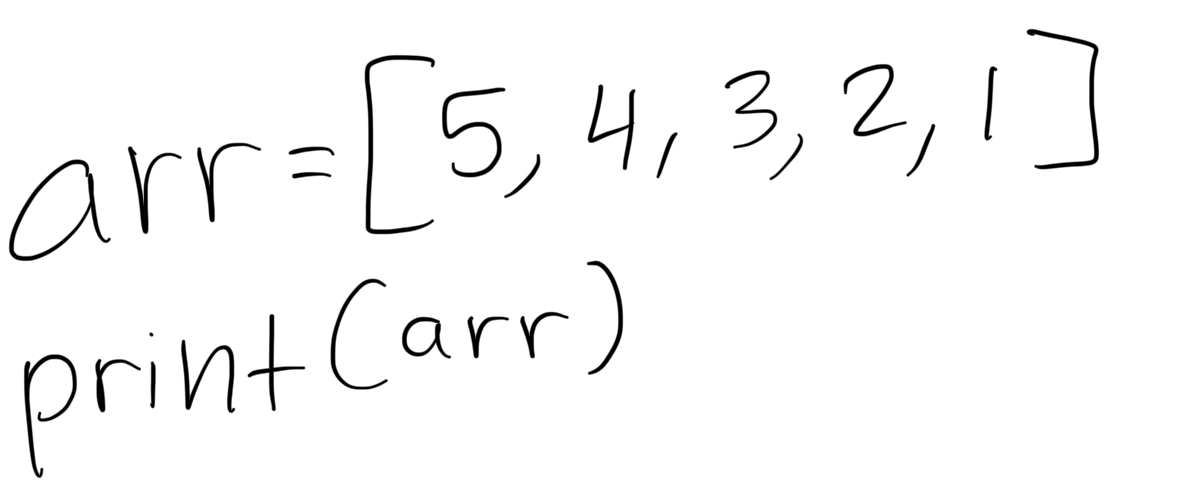 arr=[5, 4, 3, 2, 1]
print(arr)